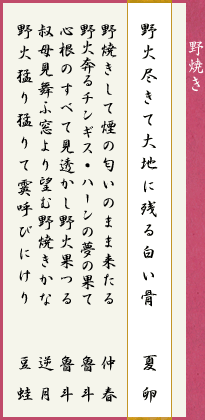 野焼き
野火尽きて大地に残る白い骨　夏卵
野焼きして煙の匂いのまま来たる　仲春
野火奔るチンギス・ハーンの夢の果て　魯斗
心根のすべて見透かし野火果つる　魯斗
叔母見舞ふ窓より望む野焼きかな　逆月
野火猛り猛りて霙呼びにけり　豆蛙